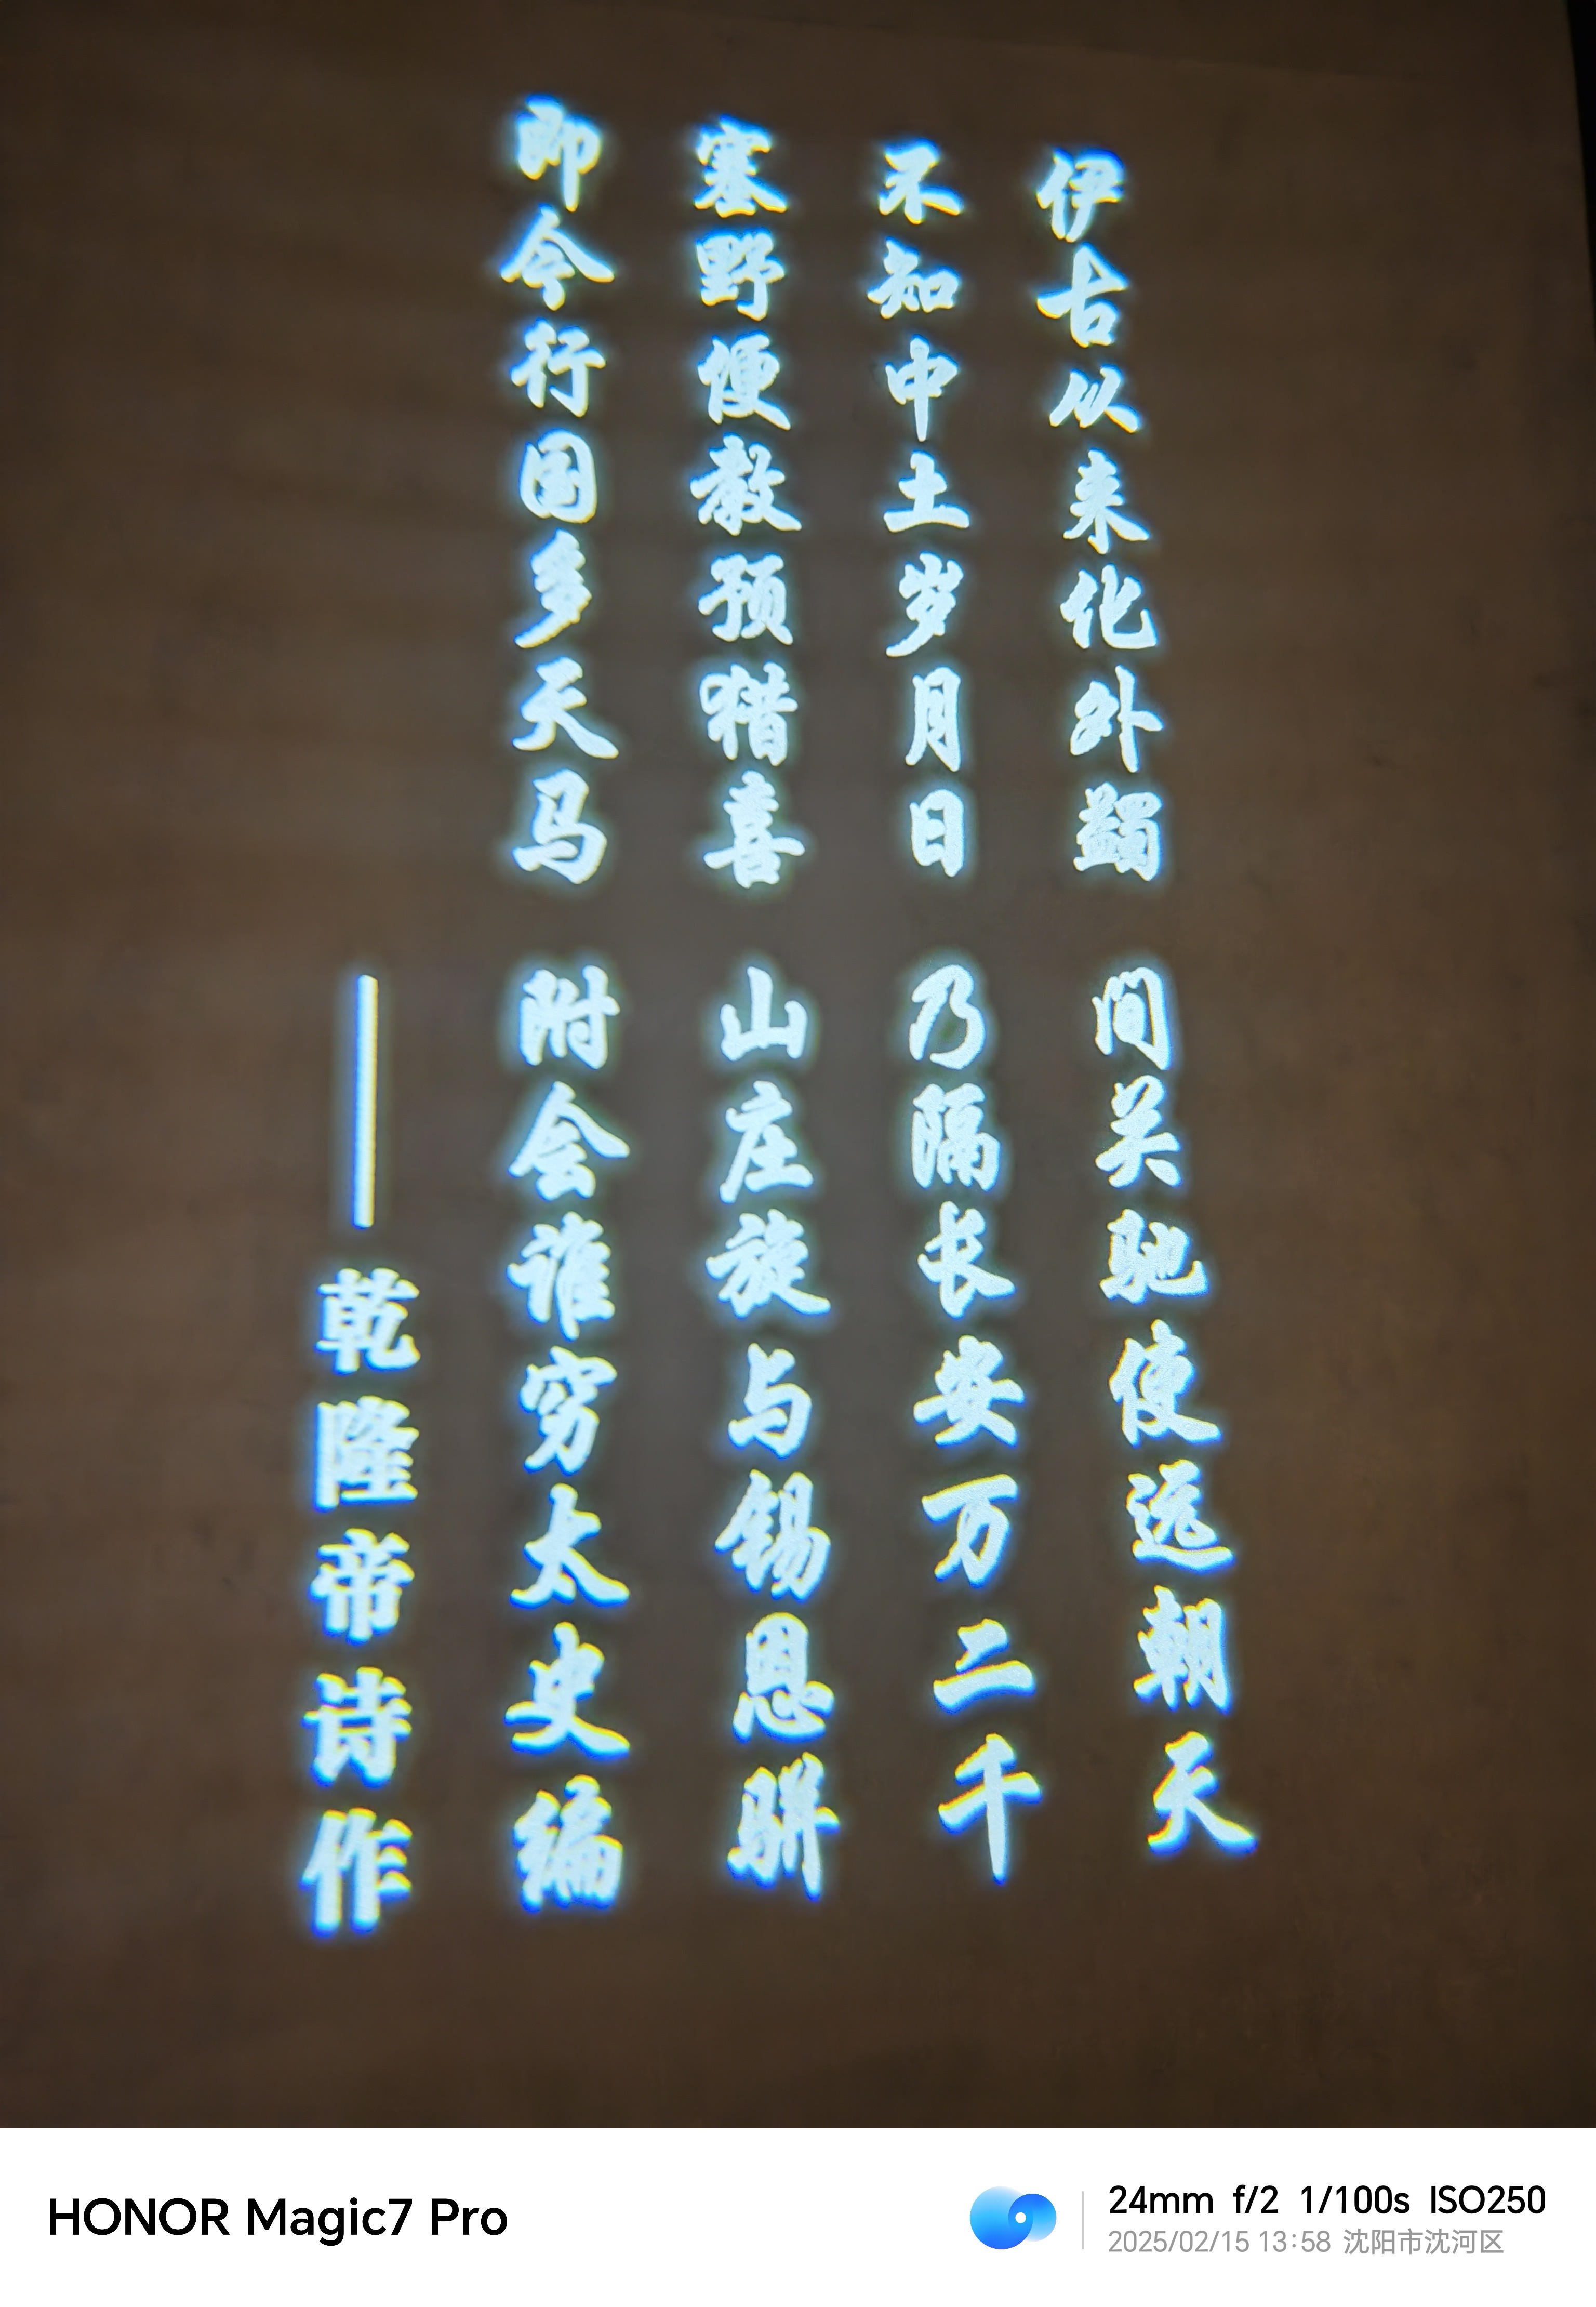 伊古从来化外蠲 间关驰使远朝天
不知中土岁月日 乃隔长安万二千
塞野便教预猎喜 山庄旋与锡恩骈
即今行国多天马 附会谁穷太史编
——乾隆帝诗作
HONOR Magic7 Pro
24mm f/2 1/100s ISO250
2025/02/15 13:58 沈阳市沈河区